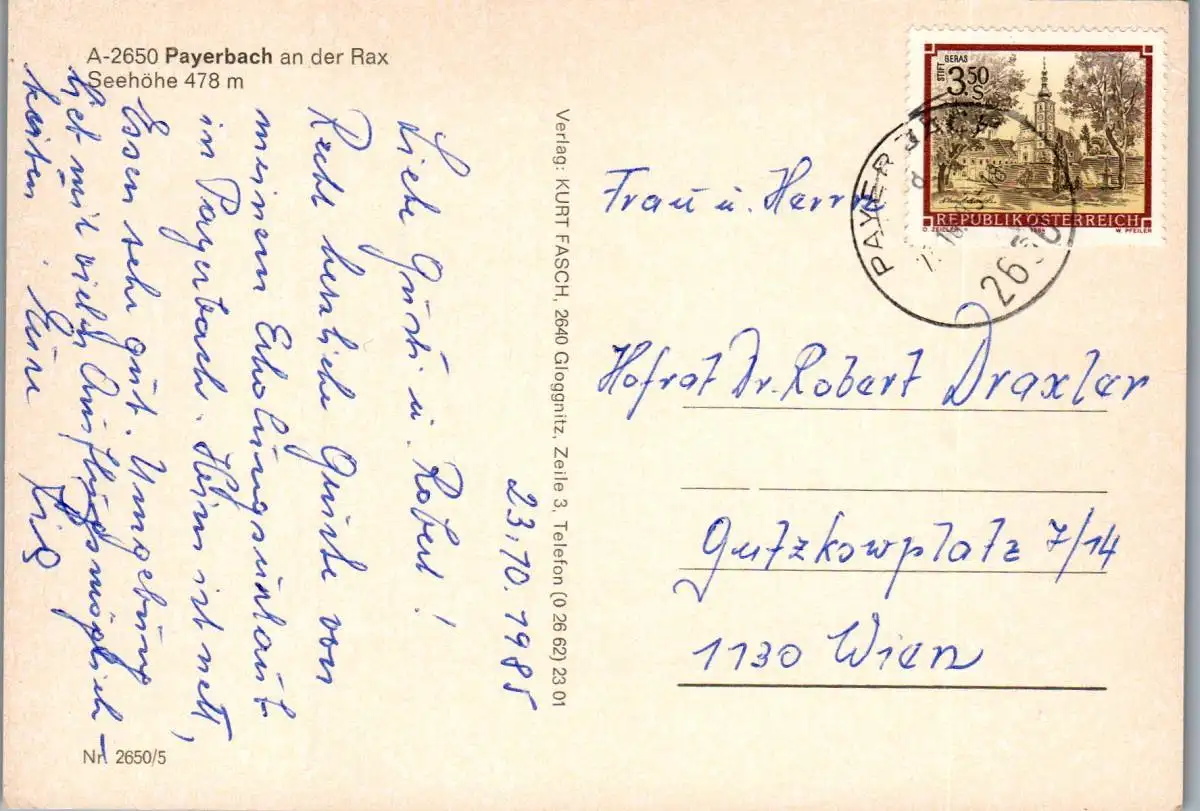 A-2650 Payerbach an der Rax
Seehöhe 478 m
23.10.1985
Liebe Gusti u. Robert!
Recht herzliche Grüße von
meinem Erholungsurlaub
in Payerbach. Heim ist nett,
Essen sehr gut. Umgebung
liebl. mit vielen Ausflugsmöglich-
keiten. Eure
Verlag: KURT FASCH, 2640 Gloggnitz, Zeile 3, Telefon (0 26 62) 23 01
STIFT GERAS
3.50 S
REPUBLIK ÖSTERREICH
O. ZEILER 1984 W. PFEILER
PAYERBACH
2650
Frau u. Herrn
Hofrat Dr. Robert Draxler
Gutzkowplatz 7/14
1130 Wien
Nr. 2650/5